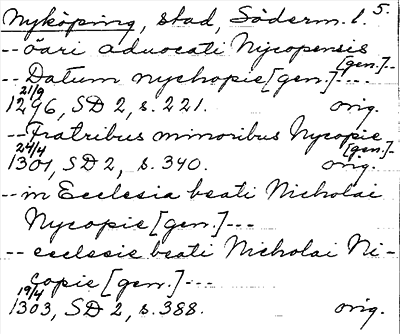 Nyköping, stad, Söderm. l. 5.
-- öari aduocati Nycopensis
[gen.]--
-- Datum nychopie [gen.] ---
21/9
1296, SD 2, s. 221. orig.
-- Fratribus minoribus Nycopie
[gen.]-
24/4
1301, SD 2, s. 340. orig.
-- in Ecclesia beati Nicholai
Nycopie [gen.] ---
-- ecclesie beati Nicholai Ni-
copie [gen.] ---
19/4
1303, SD 2, s. 388. orig.